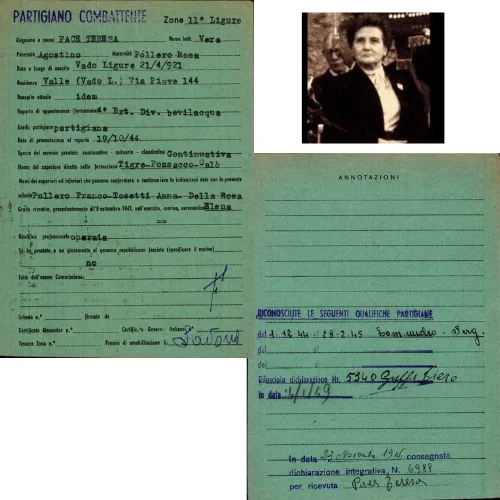 PARTIGIANO COMBATTENTE Zone 11ª Ligure
Cognome e nome PACE TERESA Nome batt. Vera
Paternità Agostino Maternità Pollero Rosa
Data e luogo di nascita Vado Ligure 21/4/921
Residenza Valle (Vado L.) Via Piave 144
Recapito attuale idem
Reparto di appartenenza (formazione) 4ª Brt. Div. bevilacqua
Grado partigiano partigiana
Data di presentazione al reparto 19/10/44
Specie del servizio prestato: continuativo - saltuario - clandestino Continuativa
Nome del superiore diretto nella formazione Tigre-Ponsacco-Salò
Nomi dei superiori ed inferiori che possono confermare o testimoniare la identicità dei dati con la presente
scheda Pollero Franco-Tosetti Anna- Della Rosa
Grado rivestito, precedentemente all'8 settembre 1943, nell'esercito, marina, aeronautica Elena
Qualifica professionale operaia
Se ha prestato o no giuramento al governo repubblicano fascista (specificare il motivo)
no
Esito dell'esame Commissione:
Scheda n.° firmata da
Certificato Alexander n.° Certific. Govern. Italiano n.°
Tessera Zona n.° Premio di smobilitazione L.
ANNOTAZIONI
RICONOSCIUTE LE SEGUENTI QUALIFICHE PARTIGIANE
dal 1.12.44 al 28-2-45 Serg.
del al
del al
Rilasciata dichiarazione Nr. 5340
in data
In data 23 Novembre consegnata
dichiarazione integrativa N. 6988
per ricevuta Pace Teresa